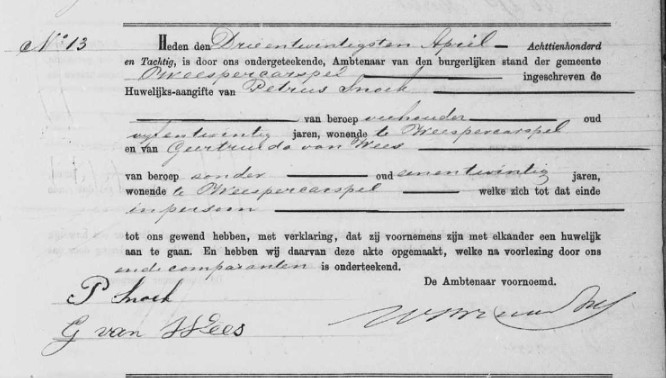 No 13
Heden den Drieentwintigsten April Achttienhonderd
en Tachtig, is door ons ondergeteekende, Ambtenaar van den burgerlijken stand der gemeente
Weespercarspel ingeschreven de
Huwelijks-aangifte van Petrus Snoek
van beroep veehouder oud
vijfentwintig jaren, wonende te Weespercarspel
en van Geertruida van Wees
van beroep zonder oud eenentwintig jaren,
wonende te Weespercarspel welke zich tot dat einde
in persoon
tot ons gewend hebben, met verklaring, dat zij voornemens zijn met elkander een huwelijk
aan te gaan. En hebben wij daarvan deze akte opgemaakt, welke na voorlezing door ons
en de comparanten is onderteekend.
De Ambtenaar voornoemd.
P Snoek
G van Wees